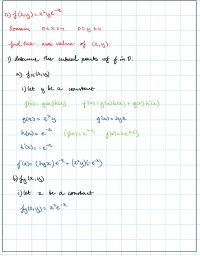 n) f(x,y) = x²ye⁻ˣ
Domain 0≤x≤4 0≤y≤4
find the max value of (x,y)
1) determine the critical points of f in D.
a) fx(x,y)
i) let y be a constant
f(x) = g(x)h(x) f'(x) = g'(x)h(x) + g(x)h'(x)
g(x) = x²y g'(x) = 2yx
h(x) = e⁻ˣ
h'(x) = -e⁻ˣ
f'(x) = (2yx)e⁻ˣ + (x²y)(-e⁻ˣ)
b) fy(x,y)
i) let x be a constant
fy(x,y) = x²e⁻ˣ